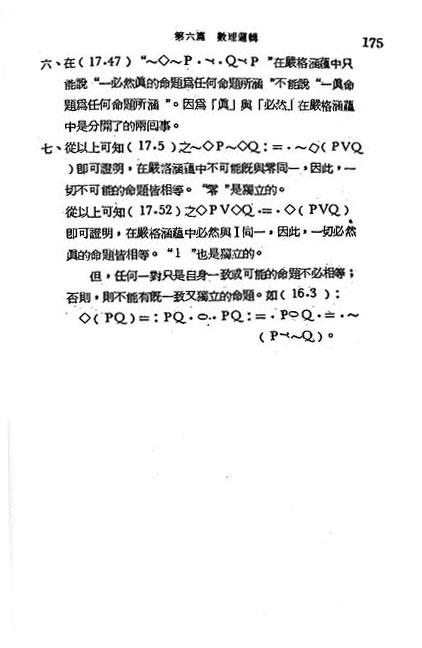 第六篇 數理邏輯 175
六、在(17.47)“~◇~P.⥽.Q⥽P”在嚴格涵蘊中只
能說“一必然眞的命題爲任何命題所涵”不能說“一眞命
題爲任何命題所涵”。因爲「眞」與「必然」在嚴格涵蘊
中是分開了的兩回事。
七、從以上可知(17.5)之~◇P~◇Q:=.~◇(PVQ
)即可證明,在嚴格涵蘊中不可能旣與零同一,因此,一
切不可能的命題皆相等。“零”是獨立的。
從以上可知(17.52)之◇PV◇Q.=.◇(PVQ)
即可證明,在嚴格涵蘊中必然與I同一,因此,一切必然
眞的命題皆相等。“1”也是獨立的。
但,任何一對只是自身一致或可能的命題不必相等;
否則,則不能有旣一致又獨立的命題。如(16.3):
◇(PQ)=:PQ.○..PQ:=.P○Q.=.~
(P⥽~Q)。